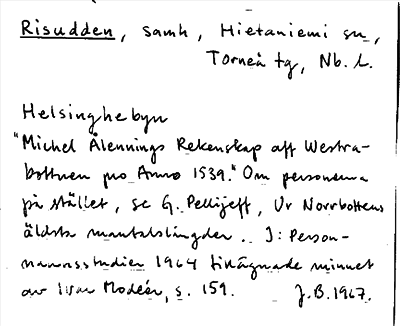 Risudden, samh, Hietaniemi sn,
Torneå tg, Nb. l.
Helsinghebyn
"Michel Ålennings Rekenskap aff Westra-
bottnen pro Anno 1539." Om personerna
på stället, se G. Pellijeff, Ur Norrbottens
äldsta mantalslängder.. I: Person-
namnsstudier 1964 tillägnade minnet
av Ivar Modéer, s. 159. J.B. 1967.